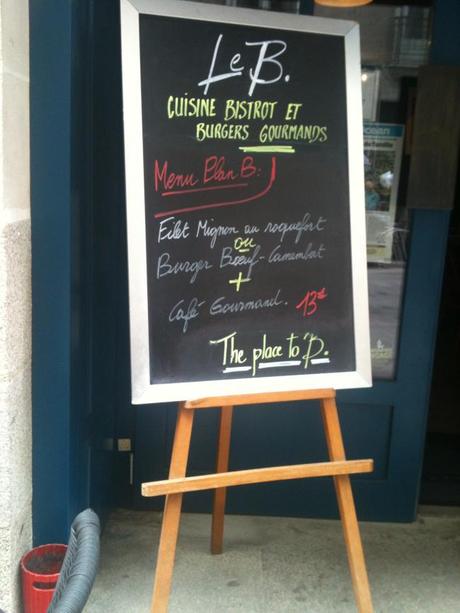 Le B.
CUISINE BISTROT ET
BURGERS GOURMANDS
Menu Plan B:
Filet Mignon au roquefort
ou
Burger Bœuf-Camembert
+
Café Gourmand. 13€
The place to B.